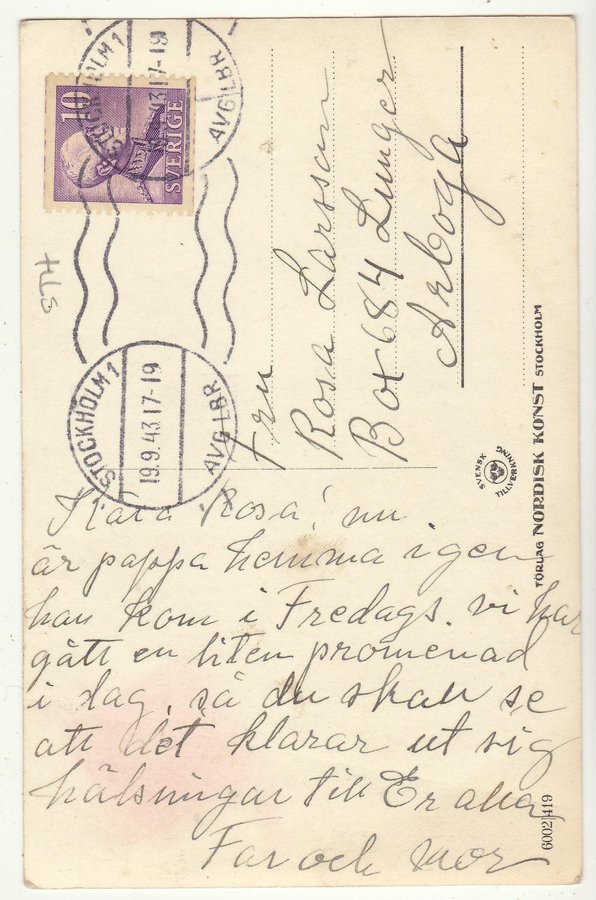 10
SVERIGE
STOCKHOLM 1
19.9.43 17-19
AVG LBR
STOCKHOLM 1
19.9.43 17-19
AVG LBR
Fru
Rosa Larsson
Box 684 Lunger
Arboga
FÖRLAG NORDISK KONST STOCKHOLM
SVENSK
TILLVERKNING
6002/419
Kära Rosa! nu
är pappa hemma igen
han kom i Fredags. vi har
gått en liten promenad
i dag, så du skall se
att det klarar ut sig
hälsningar till Er alla
Far och mor